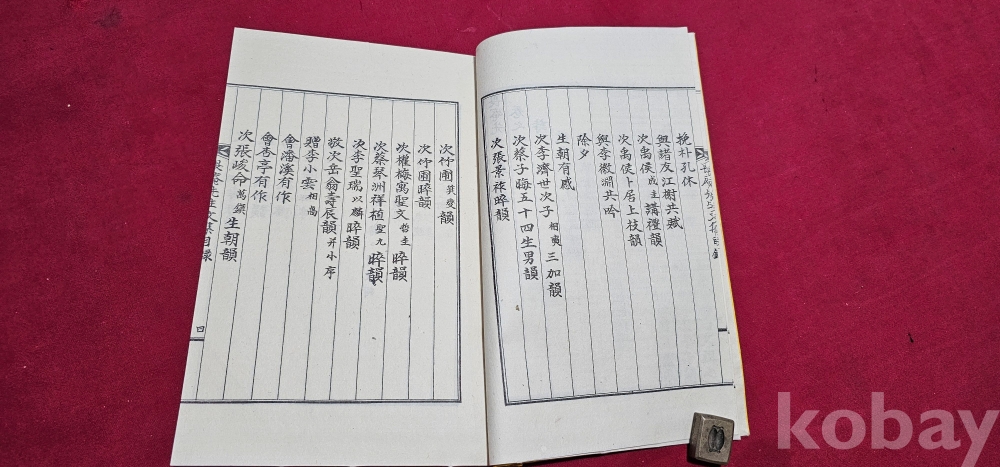 挽朴孔休
與諸友江榭共賦
次禹侯成圭講禮韻
次禹侯卜居上枝韻
與李徽淵共吟
除夕
生朝有感
次李濟世次子相寅三加韻
次蔡子晦五十四生男韻
次張景祿晬韻
次竹圃英燮韻
次竹圃晬韻
次權梅寓聖文哲圭晬韻
次蔡琴洲祥植聖九晬韻
次李聖瑞以麟晬韻
敬次岳翁壽辰韻并小序
贈李小雲相高
會潘溪有作
會春亭有作
次張峻命萬傑生朝韻
先生文集目錄
四
kobay